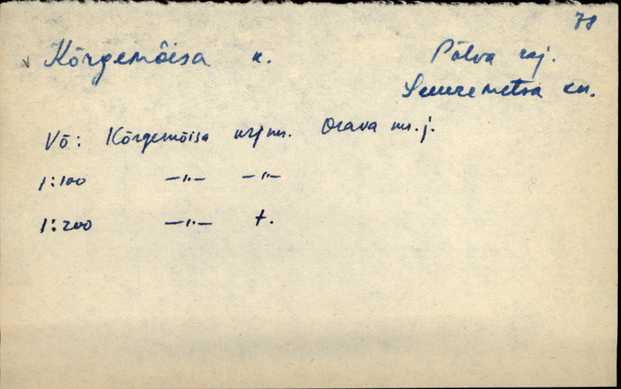 78
Kõrgemõisa k. Põlva raj.
Suuremetsa kn.
Võ: Kõrgemõisa Orava m.j.
1:100 —"— —"—
1:200 —"— t.